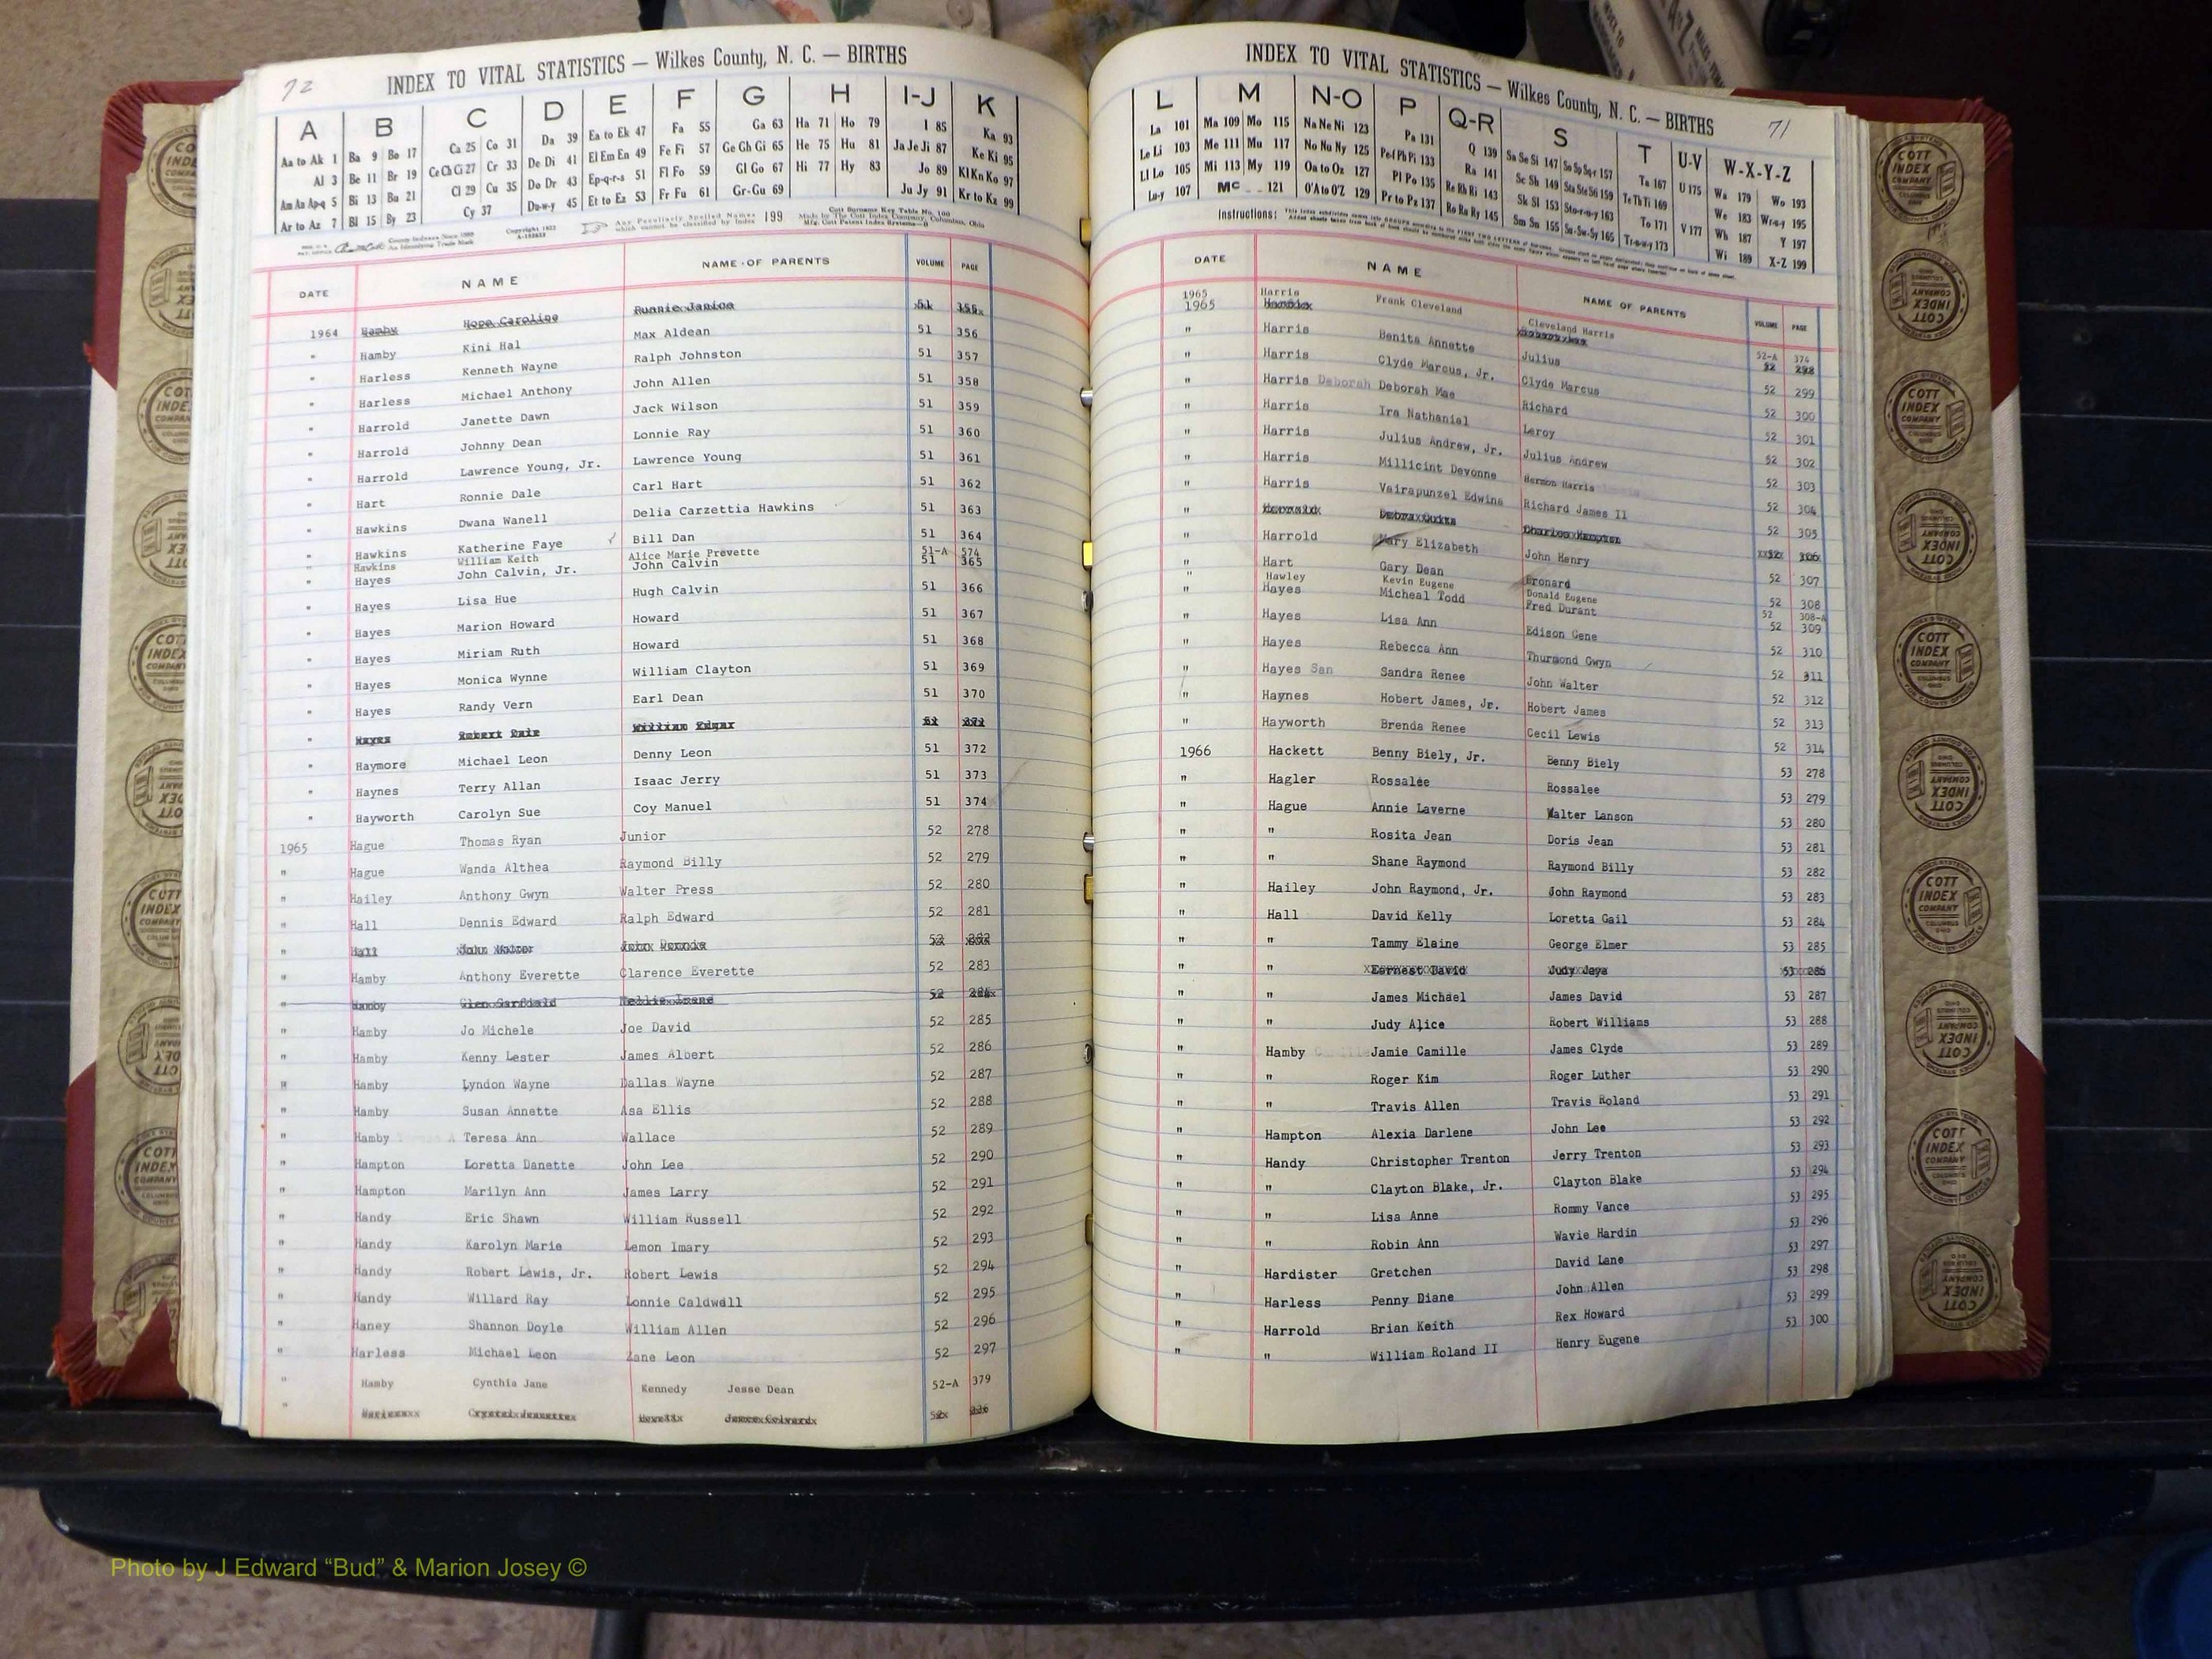 72
INDEX TO VITAL STATISTICS — Wilkes County, N. C. — BIRTHS
A B C D E F G H I-J K
Aa to Ak 1 Ba 9 Bo 17 Ca 25 Co 31 Da 39 Ea to Ek 47 Fa 55 Ga 63 Ha 71 Ho 79 I 85 Ka 93
Al 3 Be 11 Br 19 Ce Ch Ci 27 Cr 33 De Di 41 El Em En 49 Fe Fi 57 Ge Gh Gi 65 He 75 Hu 81 Ja Je Ji 87 Ke Ki 95
Am An Ap-q 5 Bi 13 Bu 21 Cl 29 Cu 35 Do Dr 43 Ep-q-r-s 51 Fl Fo 59 Gl Go 67 Hi 77 Hy 83 Jo 89 Kl Kn Ko 97
Ar to Az 7 Bl 15 By 23 Cy 37 Du-w-y 45 Et to Ez 53 Fr Fu 61 Gr-Gu 69 Ju Jy 91 Kr to Kz 99
Any Peculiarly Spelled Names which cannot be classified by index 199
DATE NAME NAME OF PARENTS VOLUME PAGE
1964 Hamby Hope Caroline Runnie Janice 51 355
" Hamby Kini Hal Max Aldean 51 356
" Harless Kenneth Wayne Ralph Johnston 51 357
" Harless Michael Anthony John Allen 51 358
" Harrold Janette Dawn Jack Wilson 51 359
" Harrold Johnny Dean Lonnie Ray 51 360
" Harrold Lawrence Young, Jr. Lawrence Young 51 361
" Hart Ronnie Dale Carl Hart 51 362
" Hawkins Dwana Wanell Delia Carzettia Hawkins 51 363
" Hawkins Katherine Faye Bill Dan 51 364
" Hawkins William Keith Alice Marie Prevette 51-A 574
" Hayes John Calvin, Jr. John Calvin 51 365
" Hayes Lisa Hue Hugh Calvin 51 366
" Hayes Marion Howard Howard 51 367
" Hayes Miriam Ruth Howard 51 368
" Hayes Monica Wynne William Clayton 51 369
" Hayes Randy Vern Earl Dean 51 370
" Hayes Robert Dale William Edgar 51 371
" Haymore Michael Leon Denny Leon 51 372
" Haynes Terry Allan Isaac Jerry 51 373
" Hayworth Carolyn Sue Coy Manuel 51 374
1965 Hague Thomas Ryan Junior 52 278
" Hague Wanda Althea Raymond Billy 52 279
" Hailey Anthony Gwyn Walter Press 52 280
" Hall Dennis Edward Ralph Edward 52 281
" Hall John Walter John Dennie 52 282
" Hamby Anthony Everette Clarence Everette 52 283
" Hamby Glen Garfield Nellie Irene 52 284
" Hamby Jo Michele Joe David 52 285
" Hamby Kenny Lester James Albert 52 286
" Hamby Lyndon Wayne Dallas Wayne 52 287
" Hamby Susan Annette Asa Ellis 52 288
" Hamby Teresa Ann Wallace 52 289
" Hampton Loretta Danette John Lee 52 290
" Hampton Marilyn Ann James Larry 52 291
" Handy Eric Shawn William Russell 52 292
" Handy Karolyn Marie Lemon Imary 52 293
" Handy Robert Lewis, Jr. Robert Lewis 52 294
" Handy Willard Ray Lonnie Caldwell 52 295
" Haney Shannon Doyle William Allen 52 296
" Harless Michael Leon Zane Leon 52 297
" Hamby Cynthia Jane Kennedy Jesse Dean 52-A 379
"
INDEX TO VITAL STATISTICS — Wilkes County, N. C. — BIRTHS
71
L M N-O P Q-R S T U-V W-X-Y-Z
La 101 Ma 109 Mo 115 Na Ne Ni 123 Pa 131 Q 139 Sa Se Si 147 So Sp Sq-r 157 Ta 167 U 175 Wa 179 Wo 193
Le Li 103 Me 111 Mu 117 No Nu Ny 125 Pe-f Ph Pi 133 Ra 141 Sc Sh 149 Sta Ste Sti 159 Te Th Ti 169 V 177 We 183 Wr-u-y 195
Ll Lo 105 Mi 113 My 119 Oa to Oz 127 Pl Po 135 Re Rh Ri 143 Sk Sl 153 Sto-r-u-y 163 To 171 Wh 187 Y 197
Lu-y 107 Mc 121 O'A to O'Z 129 Pr to Pz 137 Ro Ru Ry 145 Sm Sn 155 Su-Sw-Sy 165 Tr-u-w-y 173 Wi 189 X-Z 199
Instructions:
DATE NAME NAME OF PARENTS VOLUME PAGE
1965 Harris Frank Cleveland Cleveland Harris 52-A 374
1965 52 298
" Harris Benita Annette Julius 52 299
" Harris Clyde Marcus, Jr. Clyde Marcus 52 300
" Harris Deborah Deborah Mae Richard 52 301
" Harris Ira Nathanial Leroy 52 302
" Harris Julius Andrew, Jr. Julius Andrew 52 303
" Harris Millicint Devonne Hermon Harris 52 304
" Harris Vairapunzel Edwina Richard James II 52 305
" 306
" Harrold Mary Elizabeth John Henry 52 307
" Hart Gary Dean Bronard 52 308
" Hawley Kevin Eugene Donald Eugene 52 308-A
" Hayes Micheal Todd Fred Durant 52 309
" Hayes Lisa Ann Edison Gene 52 310
" Hayes Rebecca Ann Thurmond Gwyn 52 311
" Hayes San Sandra Renee John Walter 52 312
" Haynes Hobert James, Jr. Hobert James 52 313
" Hayworth Brenda Renee Cecil Lewis 52 314
1966 Hackett Benny Biely, Jr. Benny Biely 53 278
" Hagler Rossalee Rossalee 53 279
" Hague Annie Laverne Walter Lanson 53 280
" " Rosita Jean Doris Jean 53 281
" " Shane Raymond Raymond Billy 53 282
" Hailey John Raymond, Jr. John Raymond 53 283
" Hall David Kelly Loretta Gail 53 284
" " Tammy Elaine George Elmer 53 285
" " Earnest David Judy Jaye 53 286
" " James Michael James David 53 287
" " Judy Alice Robert Williams 53 288
" Hamby Jamie Camille James Clyde 53 289
" " Roger Kim Roger Luther 53 290
" " Travis Allen Travis Roland 53 291
" Hampton Alexia Darlene John Lee 53 292
" Handy Christopher Trenton Jerry Trenton 53 293
" " Clayton Blake, Jr. Clayton Blake 53 294
" " Lisa Anne Rommy Vance 53 295
" " Robin Ann Wavie Hardin 53 296
" Hardister Gretchen David Lane 53 297
" Harless Penny Diane John Allen 53 298
" Harrold Brian Keith Rex Howard 53 299
" " William Roland II Henry Eugene 53 300
COTT INDEX COMPANY
Photo by J Edward “Bud” & Marion Josey ©